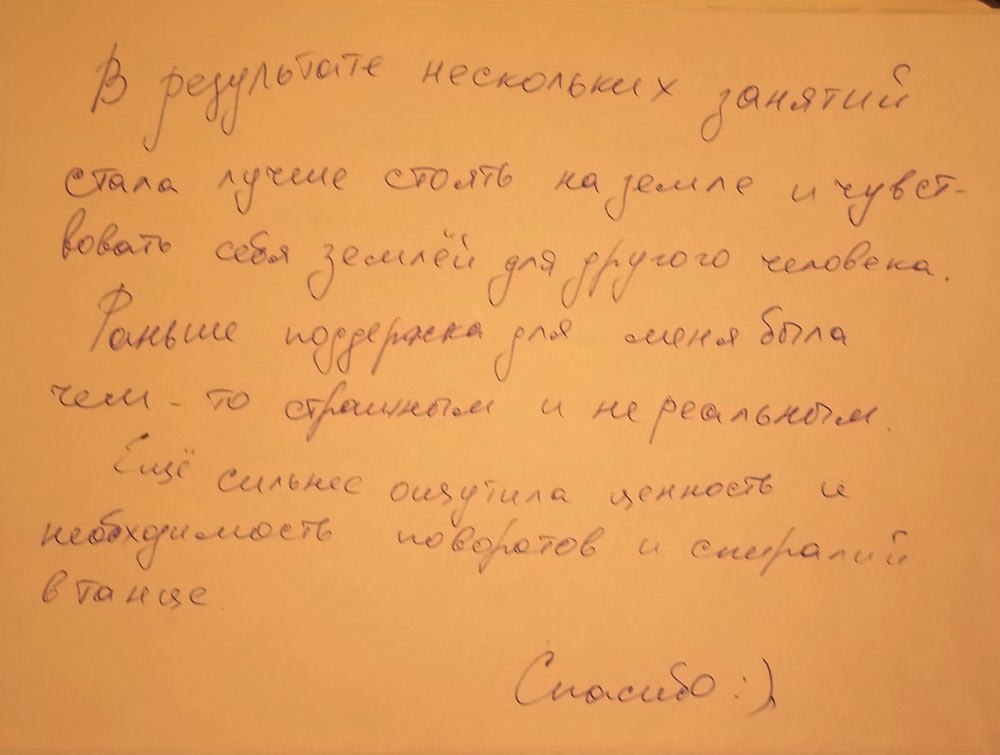 В результате нескольких занятий
стала лучше стоять на земле и чувст-
вовать себя землёй для другого человека.
Раньше поддержка для меня была
чем-то страшным и нереальным.
Ещё сильнее ощутила ценность и
необходимость поворотов и спиралий
в танце.
Спасибо :)